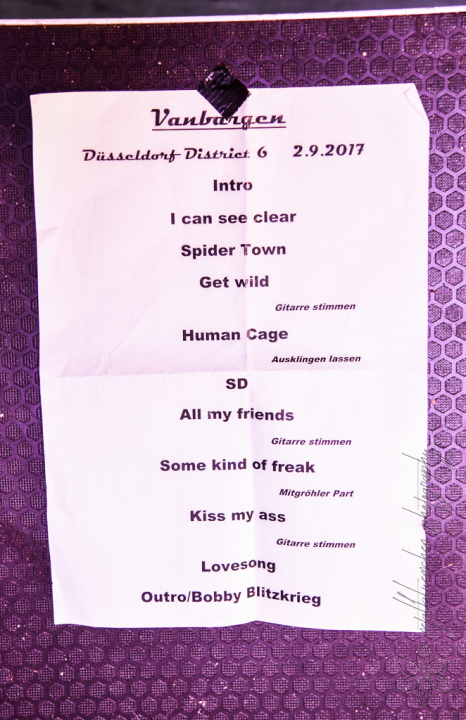 Vanbargen
Düsseldorf District 6 2.9.2017
Intro
I can see clear
Spider Town
Get wild
Gitarre stimmen
Human Cage
Ausklingen lassen
SD
All my friends
Gitarre stimmen
Some kind of freak
Mitgröhler Part
Kiss my ass
Gitarre stimmen
Lovesong
Outro/Bobby Blitzkrieg
photography